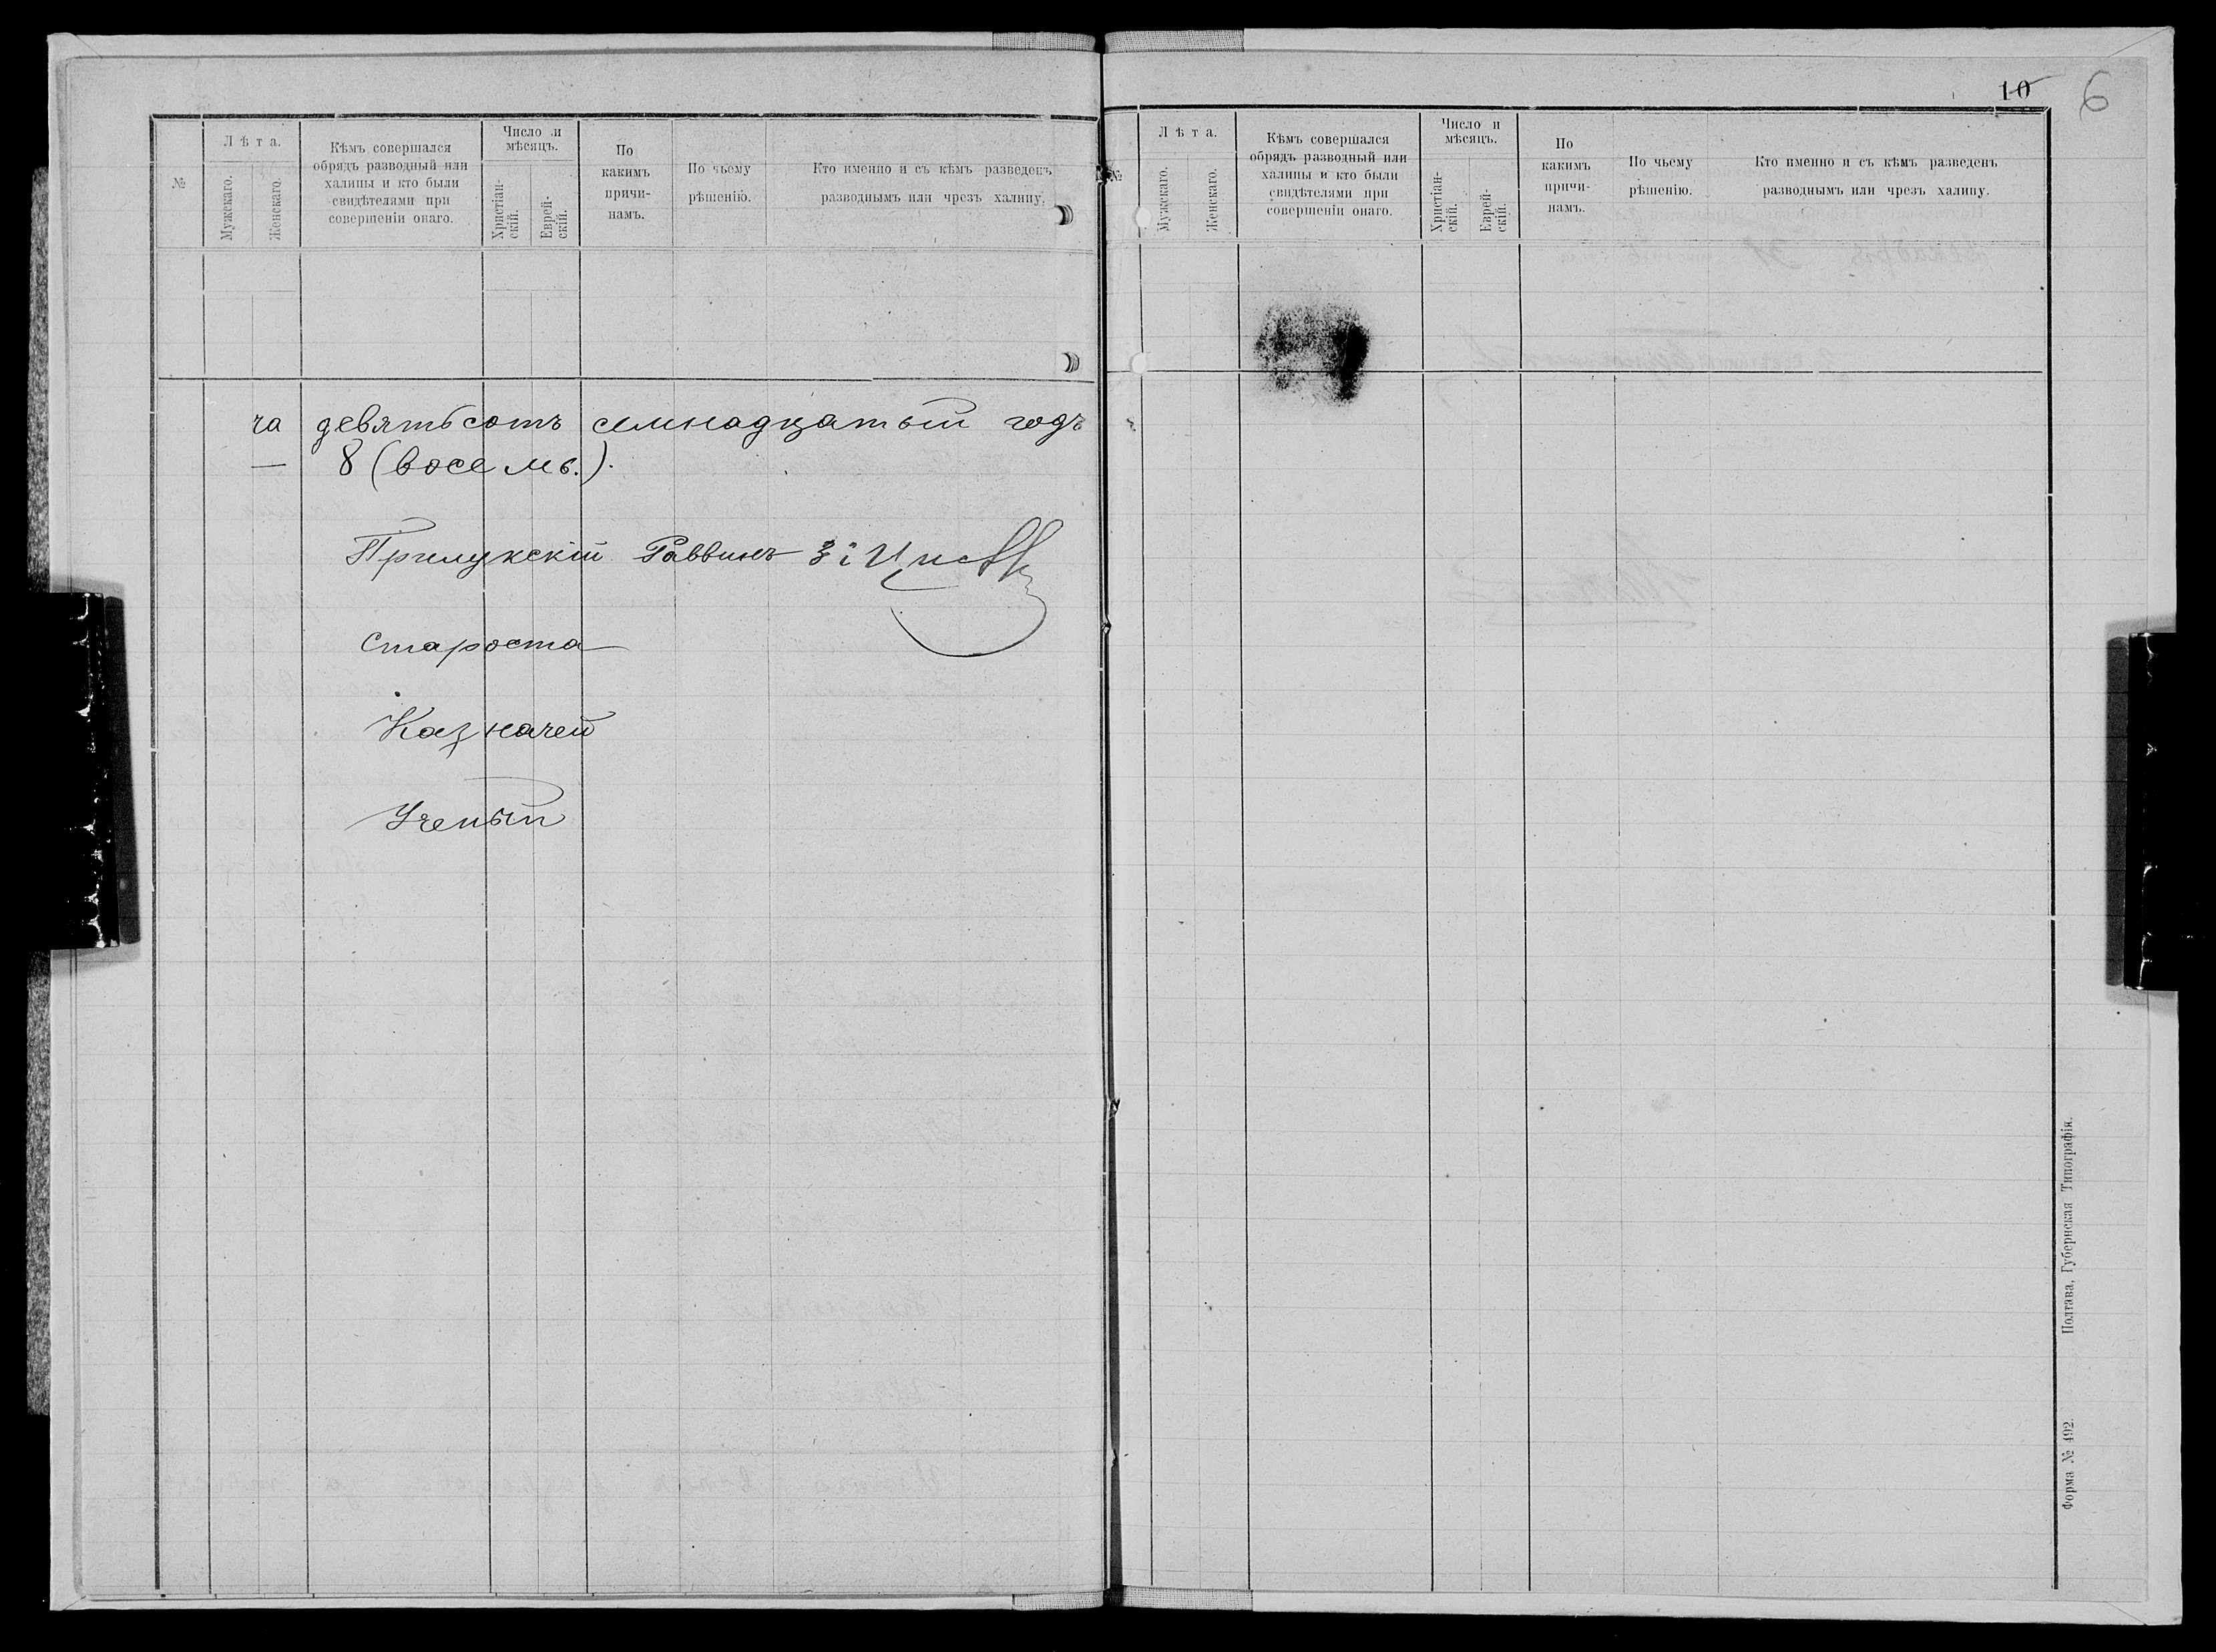 №
Лѣта.
Мужскаго.
Женскаго.
Кѣмъ совершался
обрядъ разводный или
халицы и кто были
свидѣтелями при
совершеніи онаго.
Число и
мѣсяцъ.
Христіан-
скій.
Еврей-
скій.
По
какимъ
причи-
намъ.
По чьему
рѣшенію.
Кто именно и съ кѣмъ разведенъ
разводнымъ или чрезъ халицу.
ча девятьсотъ семнадцатый годъ
— 8 (восемь.).
Прилукскій Раввинъ
Староста
Казначей
Ученый
10
6
№
Лѣта.
Мужскаго.
Женскаго.
Кѣмъ совершался
обрядъ разводный или
халицы и кто были
свидѣтелями при
совершеніи онаго.
Число и
мѣсяцъ.
Христіан-
скій.
Еврей-
скій.
По
какимъ
причи-
намъ.
По чьему
рѣшенію.
Кто именно и съ кѣмъ разведенъ
разводнымъ или чрезъ халицу.
Форма № 492. Полтава, Губернская Типографія.